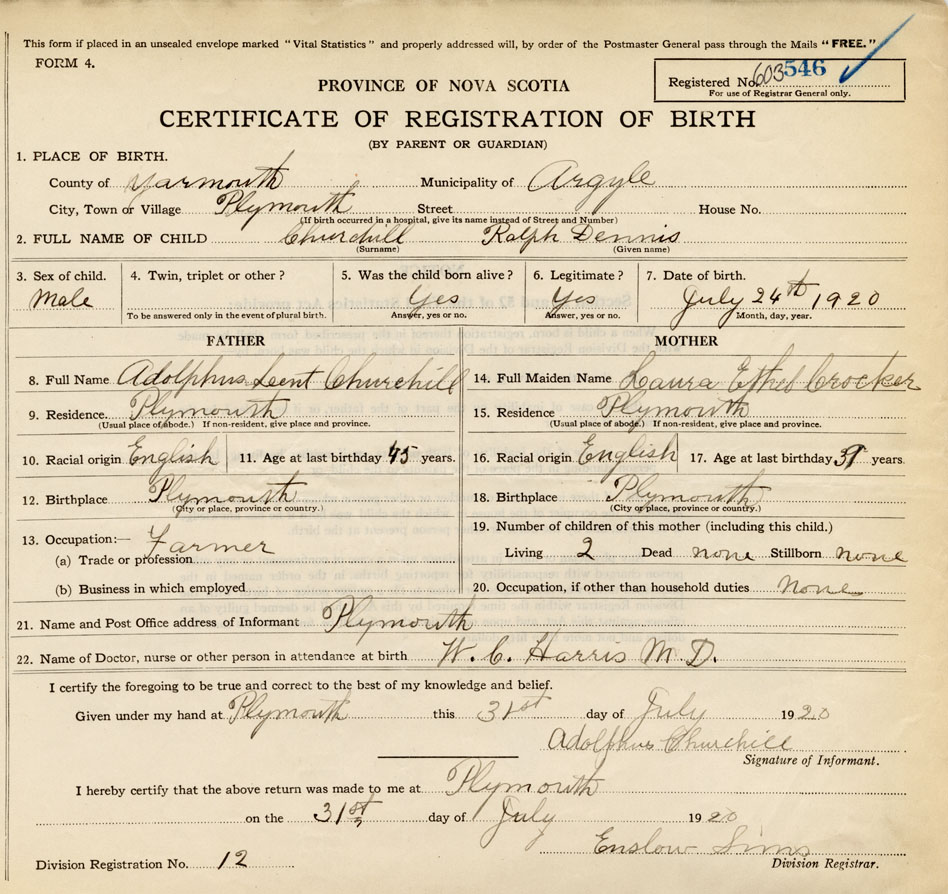 This form if placed in an unsealed envelope marked "Vital Statistics" and properly addressed will, by order of the Postmaster General pass through the Mails "FREE."
FORM 4.
Registered No. 603546
For use of Registrar General only.
PROVINCE OF NOVA SCOTIA
CERTIFICATE OF REGISTRATION OF BIRTH
(BY PARENT OR GUARDIAN)
1. PLACE OF BIRTH.
County of Yarmouth Municipality of Argyle
City, Town or Village Plymouth Street House No.
(If birth occurred in a hospital, give its name instead of Street and Number)
2. FULL NAME OF CHILD Churchill Ralph Dennis
(Surname) (Given name)
3. Sex of child. 4. Twin, triplet or other? 5. Was the child born alive? 6. Legitimate? 7. Date of birth.
Male Yes Yes July 24th 1920
To be answered only in the event of plural birth. Answer, yes or no. Answer, yes or no. Month, day, year.
FATHER MOTHER
8. Full Name Adolphus Lent Churchill 14. Full Maiden Name Laura Ethel Crocker
9. Residence. Plymouth 15. Residence Plymouth
(Usual place of abode.) If non-resident, give place and province. (Usual place of abode.) If non-resident, give place and province.
10. Racial origin English 11. Age at last birthday 45 years. 16. Racial origin English 17. Age at last birthday years.
12. Birthplace Plymouth 18. Birthplace Plymouth
(City or place, province or country.) (City or place, province or country.)
13. Occupation:— Farmer 19. Number of children of this mother (including this child.)
(a) Trade or profession Living 2 Dead none Stillborn none
(b) Business in which employed 20. Occupation, if other than household duties None
21. Name and Post Office address of Informant Plymouth
22. Name of Doctor, nurse or other person in attendance at birth W. C. Harris M.D.
I certify the foregoing to be true and correct to the best of my knowledge and belief.
Given under my hand at Plymouth this 31st day of July 1920
Adolphus Churchill
Signature of Informant.
I hereby certify that the above return was made to me at Plymouth
on the 31st day of July 1920
Enslow Sims
Division Registration No. 12 Division Registrar.